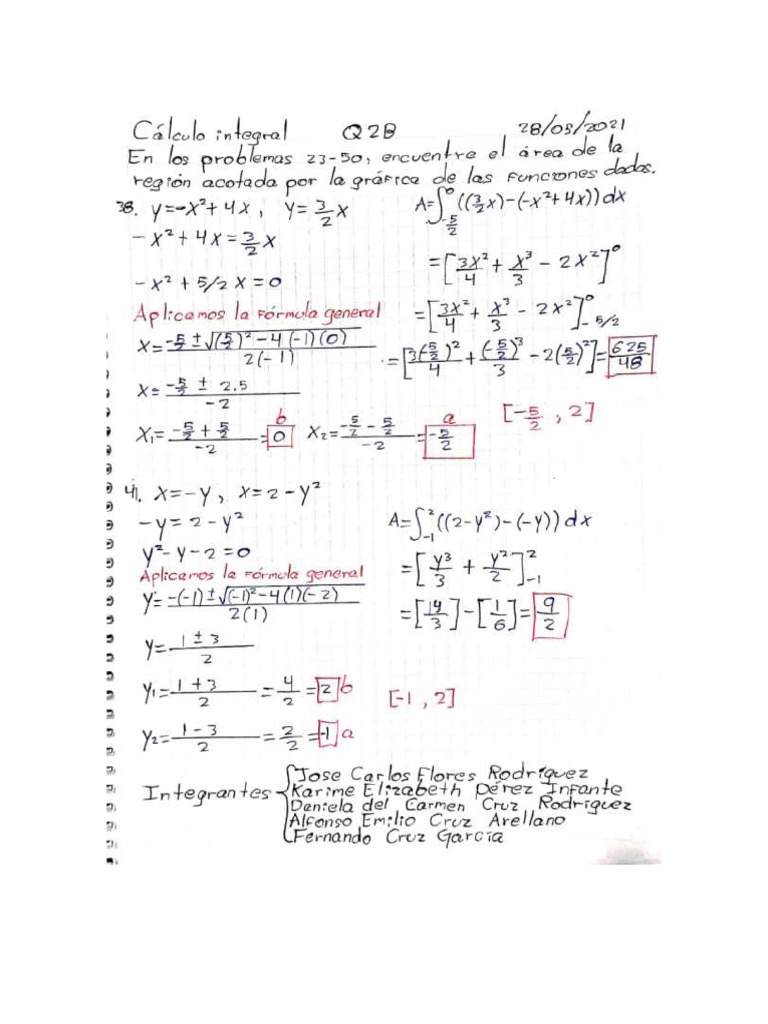 Cálculo integral Q2B 28/05/2021
En los problemas 23-50, encuentre el área de la
región acotada por la gráfica de las funciones dadas.
38. y=-x²+4x, y=3/2 x
-x²+4x=3/2 x
-x²+5/2 x=0
Aplicamos la fórmula general
x=-5/2 ± √((5/2)²-4(-1)(0)) / 2(-1)
x=-5/2 ± 2.5 / -2
x₁=-5/2 + 5/2 / -2 = 0 b
x₂=-5/2 - 5/2 / -2 = -5/2 a
A=∫₋₅/₂⁰ ((3/2 x)-(-x²+4x))dx
=[3x²/4 + x³/3 - 2x²]⁰
=[3x²/4 + x³/3 - 2x²]⁰₋₅/₂
=[3(-5/2)²/4 + (-5/2)³/3 - 2(5/2)²]=625/48
[-5/2, 2]
41. x=-y, x=2-y²
-y=2-y²
y²-y-2=0
Aplicamos la fórmula general
y=-(-1)±√((-1)²-4(1)(-2)) / 2(1)
y=1±3 / 2
y₁=1+3 / 2 = 4/2 = 2 b
y₂=1-3 / 2 = 2/2 = -1 a
A=∫₋₁² ((2-y²)-(-y))dx
=[y³/3 + y²/2]²₋₁
=[14/3]-[1/6]=9/2
[-1, 2]
Integrantes
Jose Carlos Flores Rodríguez
Karime Elizabeth Pérez Infante
Daniela del Carmen Cruz Rodríguez
Alfonso Emilio Cruz Arellano
Fernando Cruz García